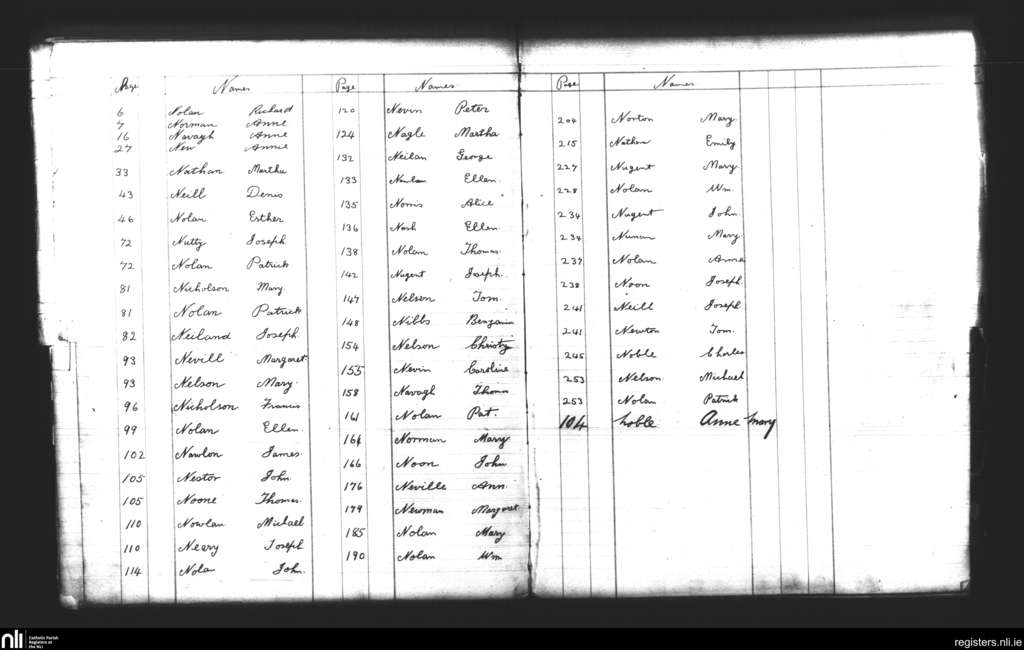 Page Names
6 Nolan Richard
7 Norman Anne
16 Navagh Anne
27 New Annie
33 Nathan Martha
43 Neill Denis
46 Nolan Esther
72 Nutty Joseph
72 Nolan Patrick
81 Nicholson Mary
81 Nolan Patrick
82 Neiland Joseph
93 Nevill Margaret
93 Nelson Mary
96 Nicholson Francis
99 Nolan Ellen
102 Nowlon James
105 Nestor John
105 Noone Thomas
110 Nowlan Michael
110 Neary Joseph
114 Nolan John
Page Names
120 Nevin Peter
124 Nagle Martha
132 Neilan George
133 Ellen
135 Norris Alice
136 Nash Ellen
138 Nolan Thomas
142 Nugent Joseph
147 Nelson Tom
148 Nibbs Benjamin
154 Nelson Christy
155 Nevin Caroline
158 Navagh Thomas
161 Nolan Pat.
164 Norman Mary
166 Noon John
176 Neville Ann
179 Newman Margaret
185 Nolan Mary
190 Nolan Wm
Page Names
204 Norton Mary
215 Nathan Emily
227 Nugent Mary
228 Nolan Wm.
234 Nugent John
234 Nunan Mary
237 Nolan Anne
238 Noon Joseph
241 Neill Joseph
241 Newton Tom
245 Noble Charles
253 Nelson Michael
253 Nolan Patrick
104 Noble Anne Mary
nli Catholic Parish
Registers at
the NLI
registers.nli.ie